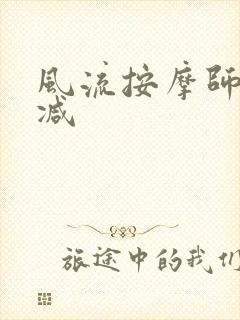 風流按摩師
减
旅途中的我们